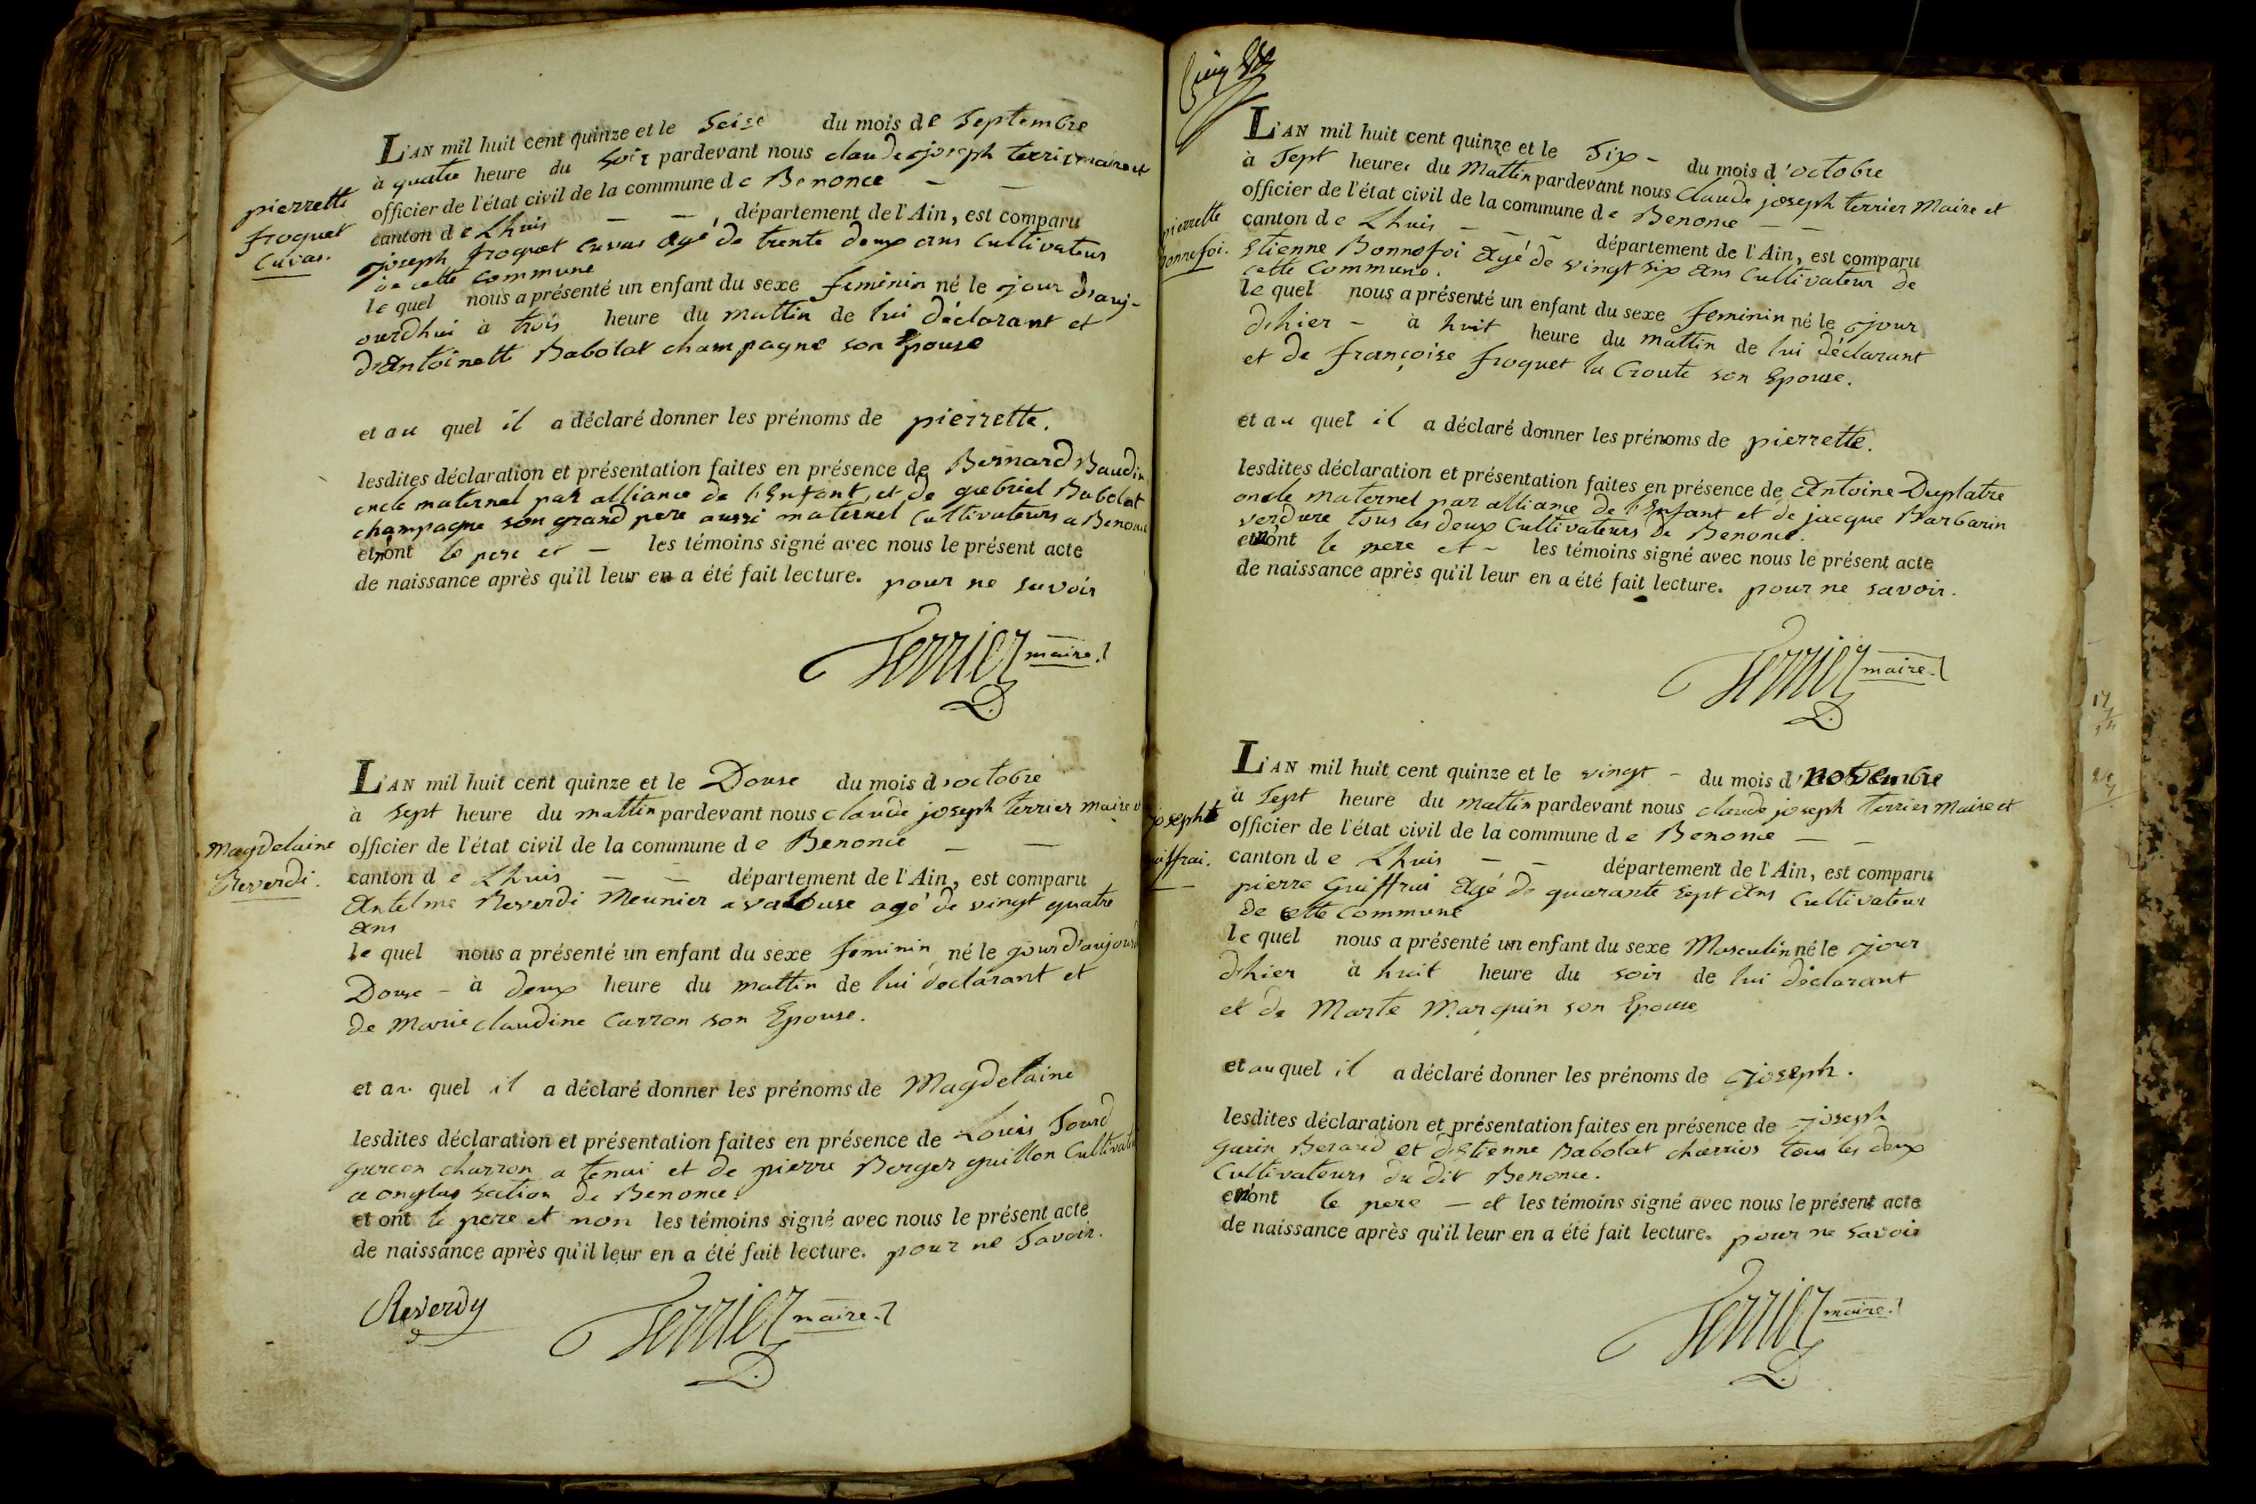 L'AN mil huit cent quinze et le Seise du mois de Septembre
à quatre heure du Soir pardevant nous claude joseph terrier maire et
officier de l'état civil de la commune de Benonce
canton de Lhuis département de l'Ain, est comparu
joseph froquet Cuvas Agé de trente deux ans Cultivateur
de cette Commune
le quel nous a présenté un enfant du sexe feminin né le jour d'auj-
ourdhui à trois heure du mattin de lui déclarant et
d'Antoinett Babolat champagne son Epouse
et au quel il a déclaré donner les prénoms de pierrette.
lesdites déclaration et présentation faites en présence de Bernard Baudin
oncle maternel par alliance de l'Enfant et de gabriel Babolat
champagne son grand pere aussi maternel Cultivateurs a Benonce
et n'ont le pere et les témoins signé avec nous le présent acte
de naissance après qu'il leur en a été fait lecture. pour ne savoir
Terrier maire
pierrette
froquet
Cuvas.
L'AN mil huit cent quinze et le Douse du mois d'octobre
à sept heure du mattin pardevant nous claude joseph terrier maire
officier de l'état civil de la commune de Benonce
canton de Lhuis département de l'Ain, est comparu
Antelme Reverdi Meunier a valouse agé de vingt quatre
Ans
le quel nous a présenté un enfant du sexe feminin né le jour d'aujourd
Douse - à deux heure du mattin de lui declarant et
de Marie claudine Carron son Epouse.
et au quel il a déclaré donner les prénoms de Magdelaine
lesdites déclaration et présentation faites en présence de Louis Sourd
garcon charron a tenai et de pierre Berger guillon Cultivateur
a onglas section de Benonce.
et ont le pere et non les témoins signé avec nous le présent acte
de naissance après qu'il leur en a été fait lecture. pour ne Savoir.
Reverdy Terrier maire
Magdelaine
Reverdi.
L'AN mil huit cent quinze et le Six - du mois d'octobre
à Sept heures du Mattin pardevant nous Claude joseph terrier Maire et
officier de l'état civil de la commune de Benonce
canton de Lhuis département de l'Ain, est comparu
Etienne Bonnefoi Agé de vingt six Ans Cultivateur de
cette Commune.
le quel nous a présenté un enfant du sexe feminin né le jour
d'hier - à huit heure du mattin de lui déclarant
et de françoise froquet la Croute son Epouse.
et au quel il a déclaré donner les prénoms de pierrette.
lesdites déclaration et présentation faites en présence de Antoine Duplatre
oncle maternel par alliance de l'Enfant et de jacque Barbarin
verdure tous les deux Cultivateurs de Benonce.
et n'ont le pere et - les témoins signé avec nous le présent acte
de naissance après qu'il leur en a été fait lecture. pour ne savoir.
Terrier maire
pierrette
Bonnefoi.
L'AN mil huit cent quinze et le vingt - du mois d'novembre
à Sept heure du mattin pardevant nous claude joseph terrier Maire et
officier de l'état civil de la commune de Benonce
canton de Lhuis département de l'Ain, est comparu
pierre Guiffrai Agé de quarante sept Ans Cultivateur
de cette Commune
le quel nous a présenté un enfant du sexe Masculin né le jour
d'hier à huit heure du soir de lui déclarant
et de Marte Marquin son Epouse
et au quel il a déclaré donner les prénoms de joseph.
lesdites déclaration et présentation faites en présence de joseph
Gurin Berard et d'Etienne Babolat charrier tous les deux
Cultivateurs du dit Benonce.
et n'ont le pere - et les témoins signé avec nous le présent acte
de naissance après qu'il leur en a été fait lecture. pour ne savoir
Terrier maire
joseph
uiffrai.